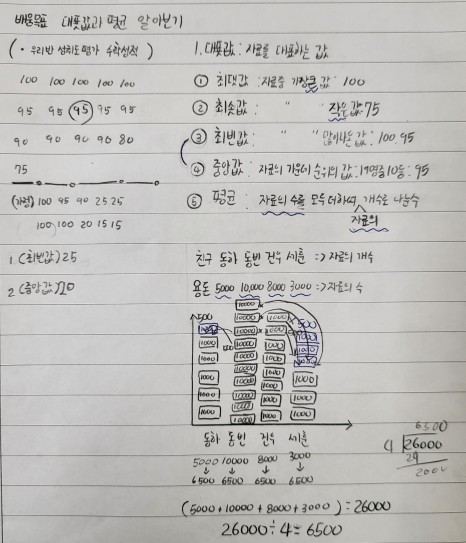 배움목표 대푯값과 평균 알아보기
(· 우리반 성취도평가 수학성적)
100 100 100 100 100
95 95 95 95 95
90 90 90 90 80
75
(가정) 100 95 90 25 25
100 100 20 15 15
1. (최빈값) 25
2. (중앙값) 20
1. 대푯값 : 자료를 대표하는 값
① 최댓값 : 자료중 가장큰 값 : 100
② 최솟값 : " 작은 값 : 75
③ 최빈값 : " " 많이나온 값 : 100, 95
④ 중앙값 : 자료의 가운데 순위의 값 : 19명중 10등 : 95
⑤ 평균 : 자료의 수를 모두 더하여 개수로 나눈수
자료의
친구 동하 동빈 건우 세훈 => 자료의 개수
용돈 5000 10,000 8000 3000 => 자료의 수
500
500
1000
10000
동하 동빈 건우 세훈
5000 10000 8000 3000
↓ ↓ ↓ ↓
6500 6500 6500 6500
6500
4 26000
24
2000
(5000+10000+8000+3000) = 26000
26000÷4=6500